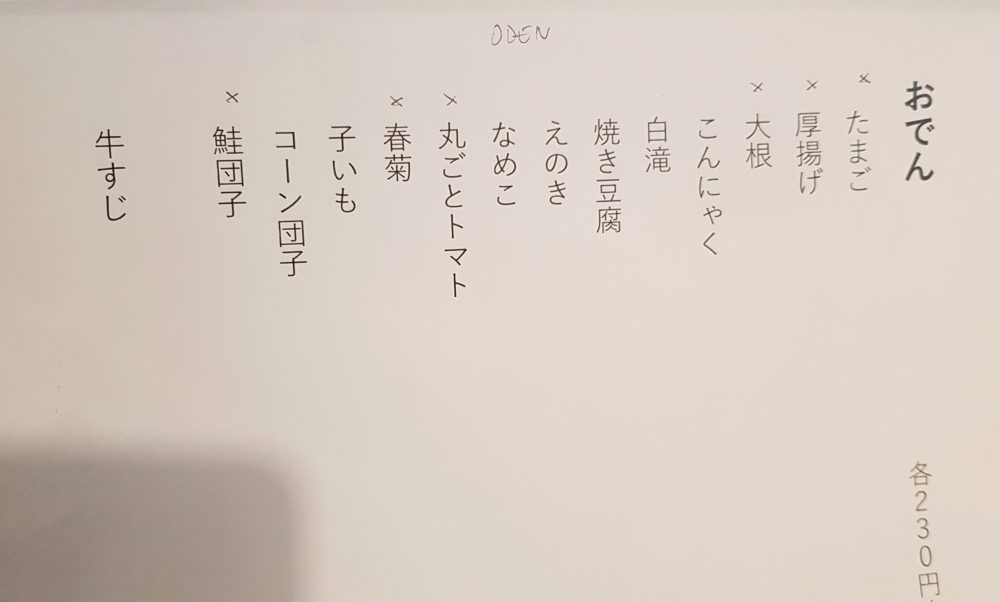 ODEN
おでん 各230円
× たまご
× 厚揚げ
× 大根
こんにゃく
白滝
焼き豆腐
えのき
なめこ
× 丸ごとトマト
× 春菊
子いも
コーン団子
× 鮭団子
牛すじ